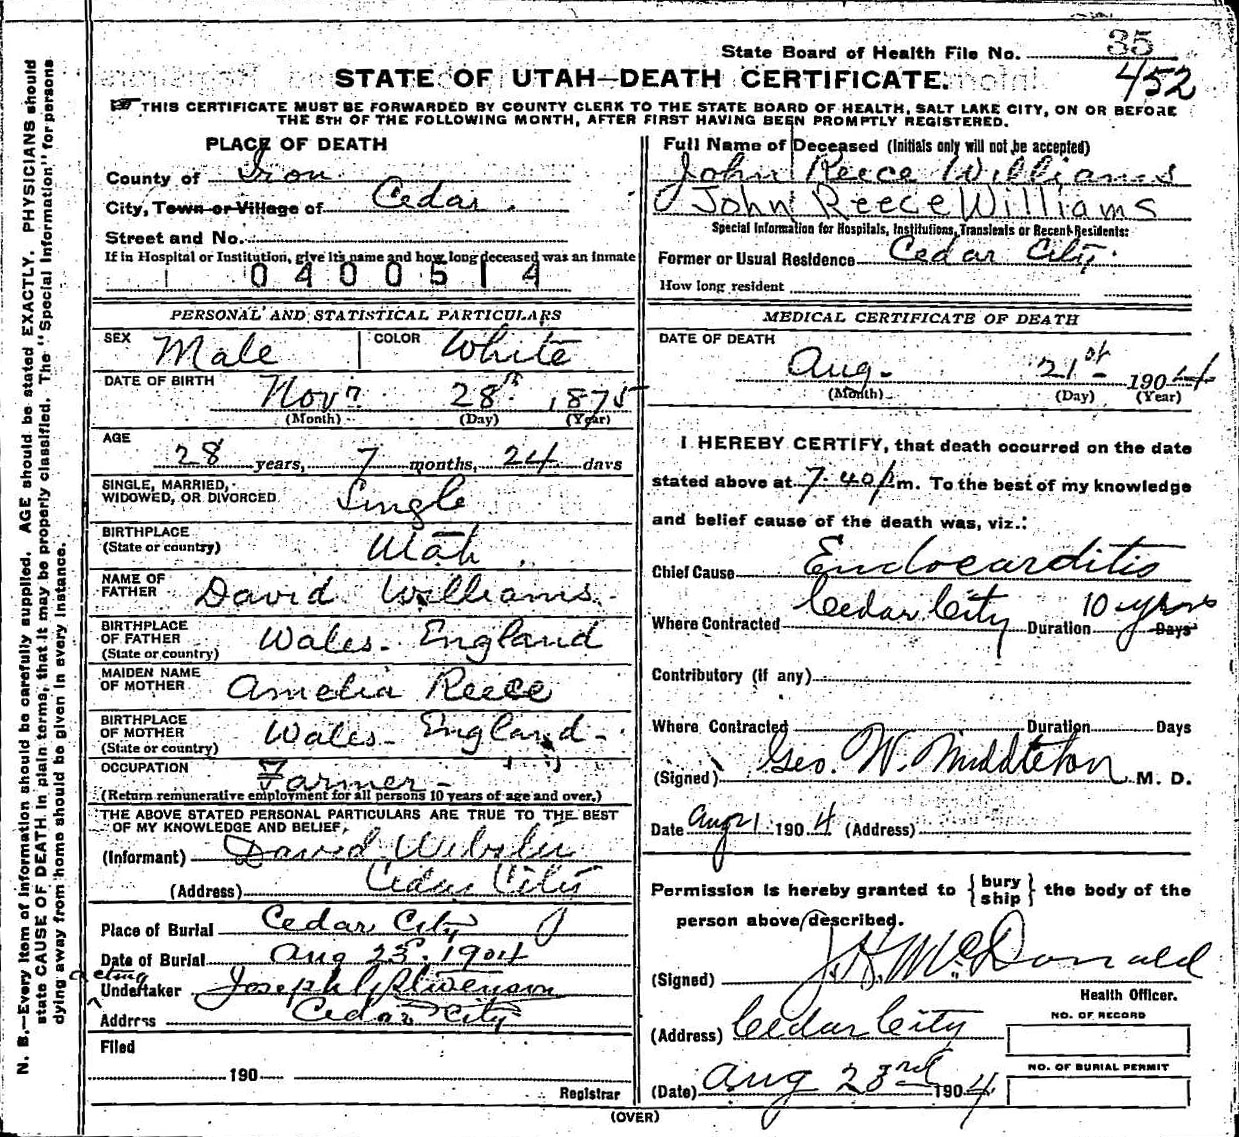 State Board of Health File No. 35
452
STATE OF UTAH—DEATH CERTIFICATE.
THIS CERTIFICATE MUST BE FORWARDED BY COUNTY CLERK TO THE STATE BOARD OF HEALTH, SALT LAKE CITY, ON OR BEFORE
THE 5TH OF THE FOLLOWING MONTH, AFTER FIRST HAVING BEEN PROMPTLY REGISTERED.
PLACE OF DEATH
County of Iron
City, Town or Village of Cedar.
Street and No.
If in Hospital or Institution, give its name and how long deceased was an inmate
0400514
PERSONAL AND STATISTICAL PARTICULARS
SEX Male COLOR White
DATE OF BIRTH Nov 28th 1875
(Month) (Day) (Year)
AGE
28 years, 7 months, 24 days
SINGLE, MARRIED,
WIDOWED, OR DIVORCED Single
BIRTHPLACE
(State or country) Utah
NAME OF
FATHER David Williams
BIRTHPLACE
OF FATHER
(State or country) Wales - England
MAIDEN NAME
OF MOTHER Amelia Reece
BIRTHPLACE
OF MOTHER
(State or country) Wales - England -
OCCUPATION Farmer -
(Return remunerative employment for all persons 10 years of age and over.)
THE ABOVE STATED PERSONAL PARTICULARS ARE TRUE TO THE BEST
OF MY KNOWLEDGE AND BELIEF.
(Informant) David Webster
(Address) Cedar City
Place of Burial Cedar City
Date of Burial Aug 23. 1904
acting
Undertaker Joseph
Address Cedar City
Filed
190
Registrar
Full Name of Deceased (Initials only will not be accepted)
John Reece Williams
John Reece Williams
Special Information for Hospitals, Institutions, Transients or Recent Residents:
Former or Usual Residence Cedar City.
How long resident
MEDICAL CERTIFICATE OF DEATH
DATE OF DEATH
Aug. 21st 1904
(Month) (Day) (Year)
I HEREBY CERTIFY, that death occurred on the date
stated above at 7.40 p m. To the best of my knowledge
and belief cause of the death was, viz.:
Chief Cause Endocarditis
Where Contracted Cedar City Duration 10 years Days
Contributory (if any)
Where Contracted Duration Days
(Signed) Geo. W. Middleton M. D.
Date Aug 1904 (Address)
Permission is hereby granted to { bury ship } the body of the
person above described.
(Signed) McDonald
Health Officer.
(Address) Cedar City
NO. OF RECORD
NO. OF BURIAL PERMIT
(Date) Aug 23rd 1904
(OVER)
N. B.—Every item of information should be carefully supplied. AGE should be stated EXACTLY. PHYSICIANS should
state CAUSE OF DEATH in plain terms, that it may be properly classified. The "Special Information" for persons
dying away from home should be given in every instance.